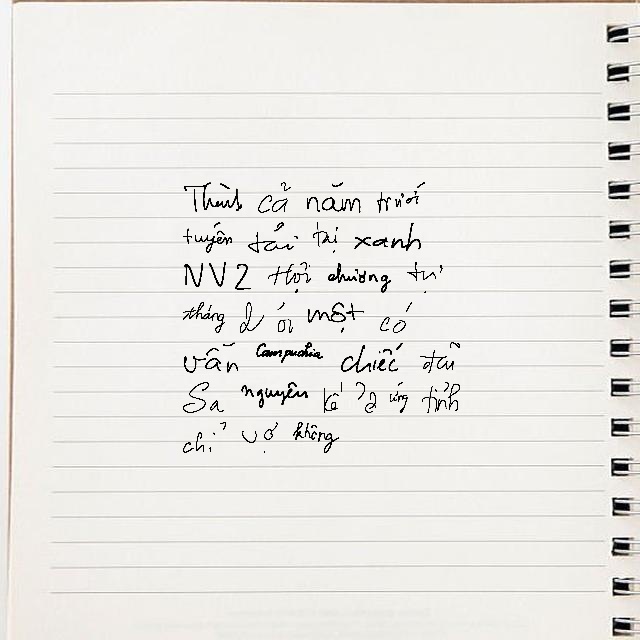 cả năm trước
tuyến tái tại xanh
NV2 Hội chương tự
tháng 2 ói một có
vẫn Campuchia chiếc đầu
Sa nguyên kế ứng tỉnh
chỉ vợ không